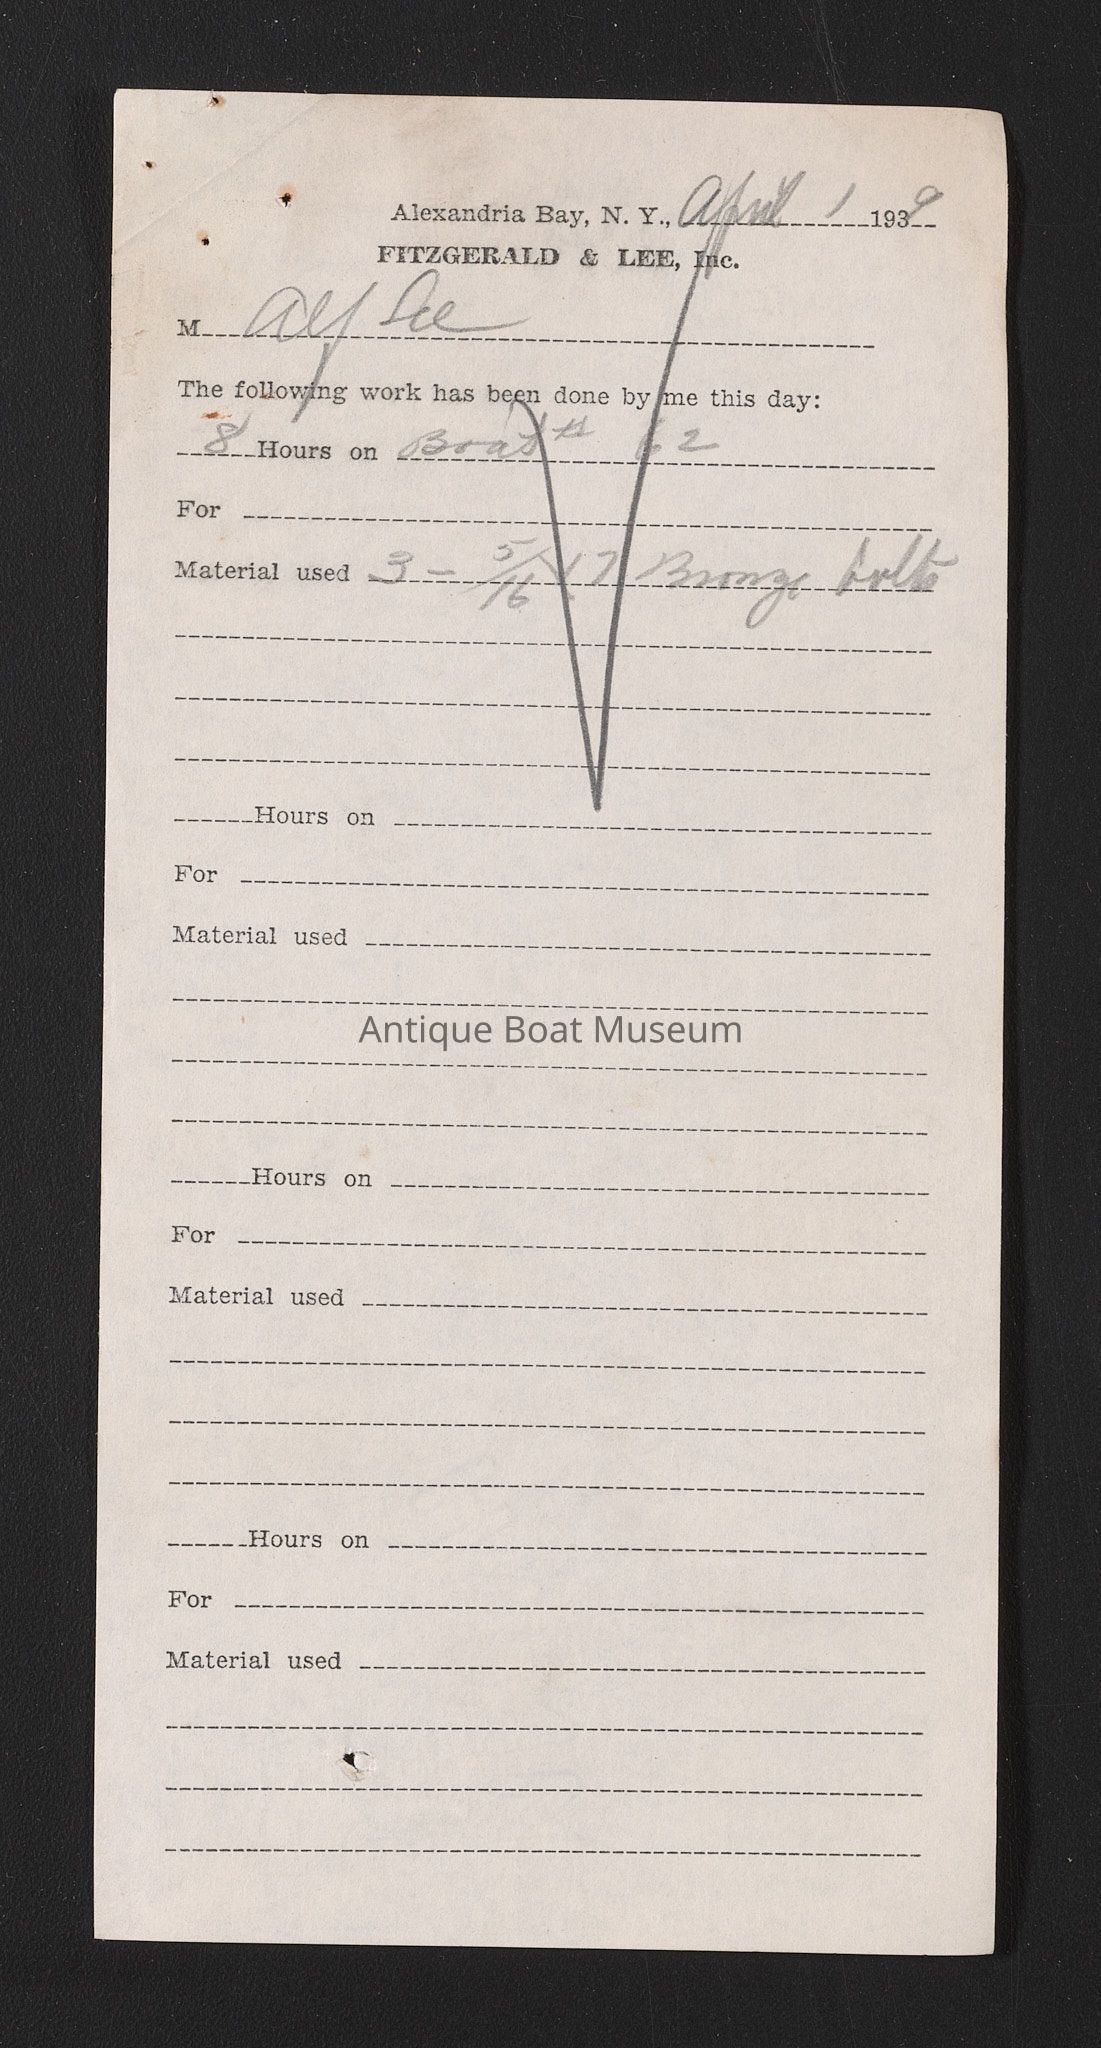 Alexandria Bay, N. Y., April 1 1939
FITZGERALD & LEE, Inc.
M Alf Lee
The following work has been done by me this day:
8 Hours on Boat # 62
For
Material used 3 - 5/16 x 17 Bronze bolts
Hours on
For
Material used
Antique Boat Museum
Hours on
For
Material used
Hours on
For
Material used